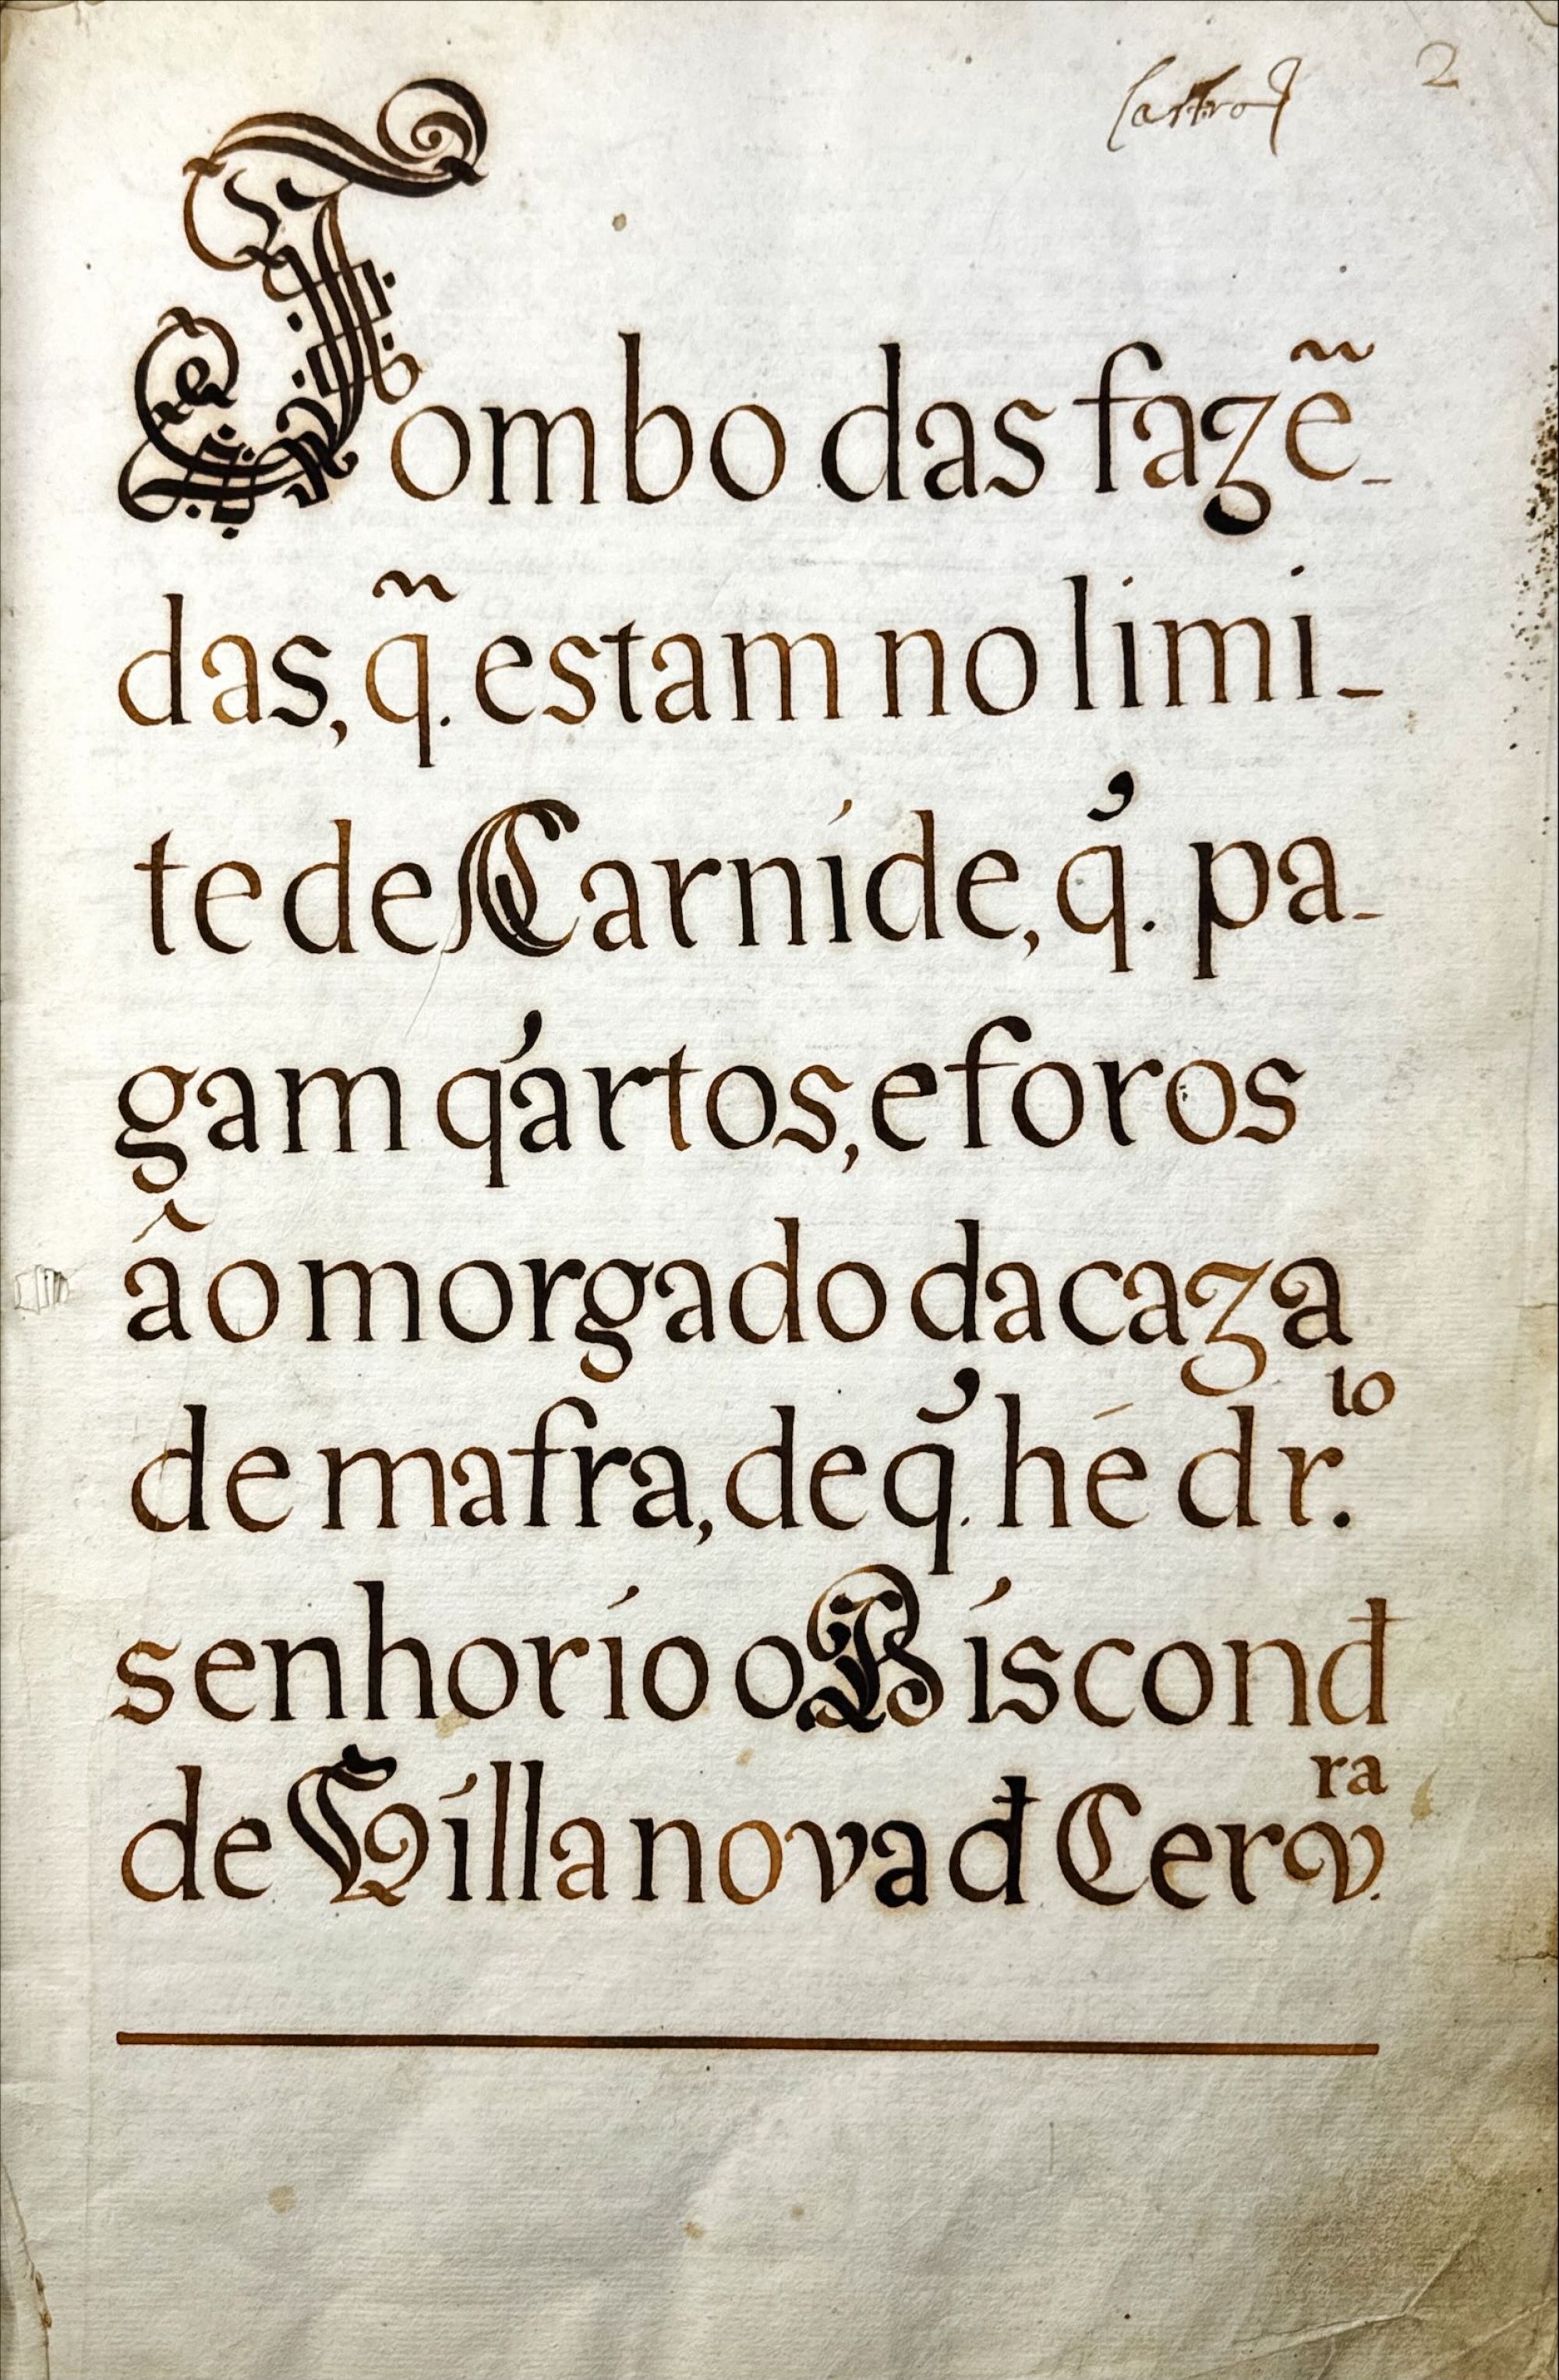 Castro 2
Tombo das fazẽ-
das, q̃. estam no limi-
te de Carnide, q̓. pa-
gam q̓artos, e foros
âo morgado da caza
de mafra, de q̓. hé dr.ᵗᵒ
senhorio o Biscond̵
de Villa nova d̵ Cerv.ʳᵃ